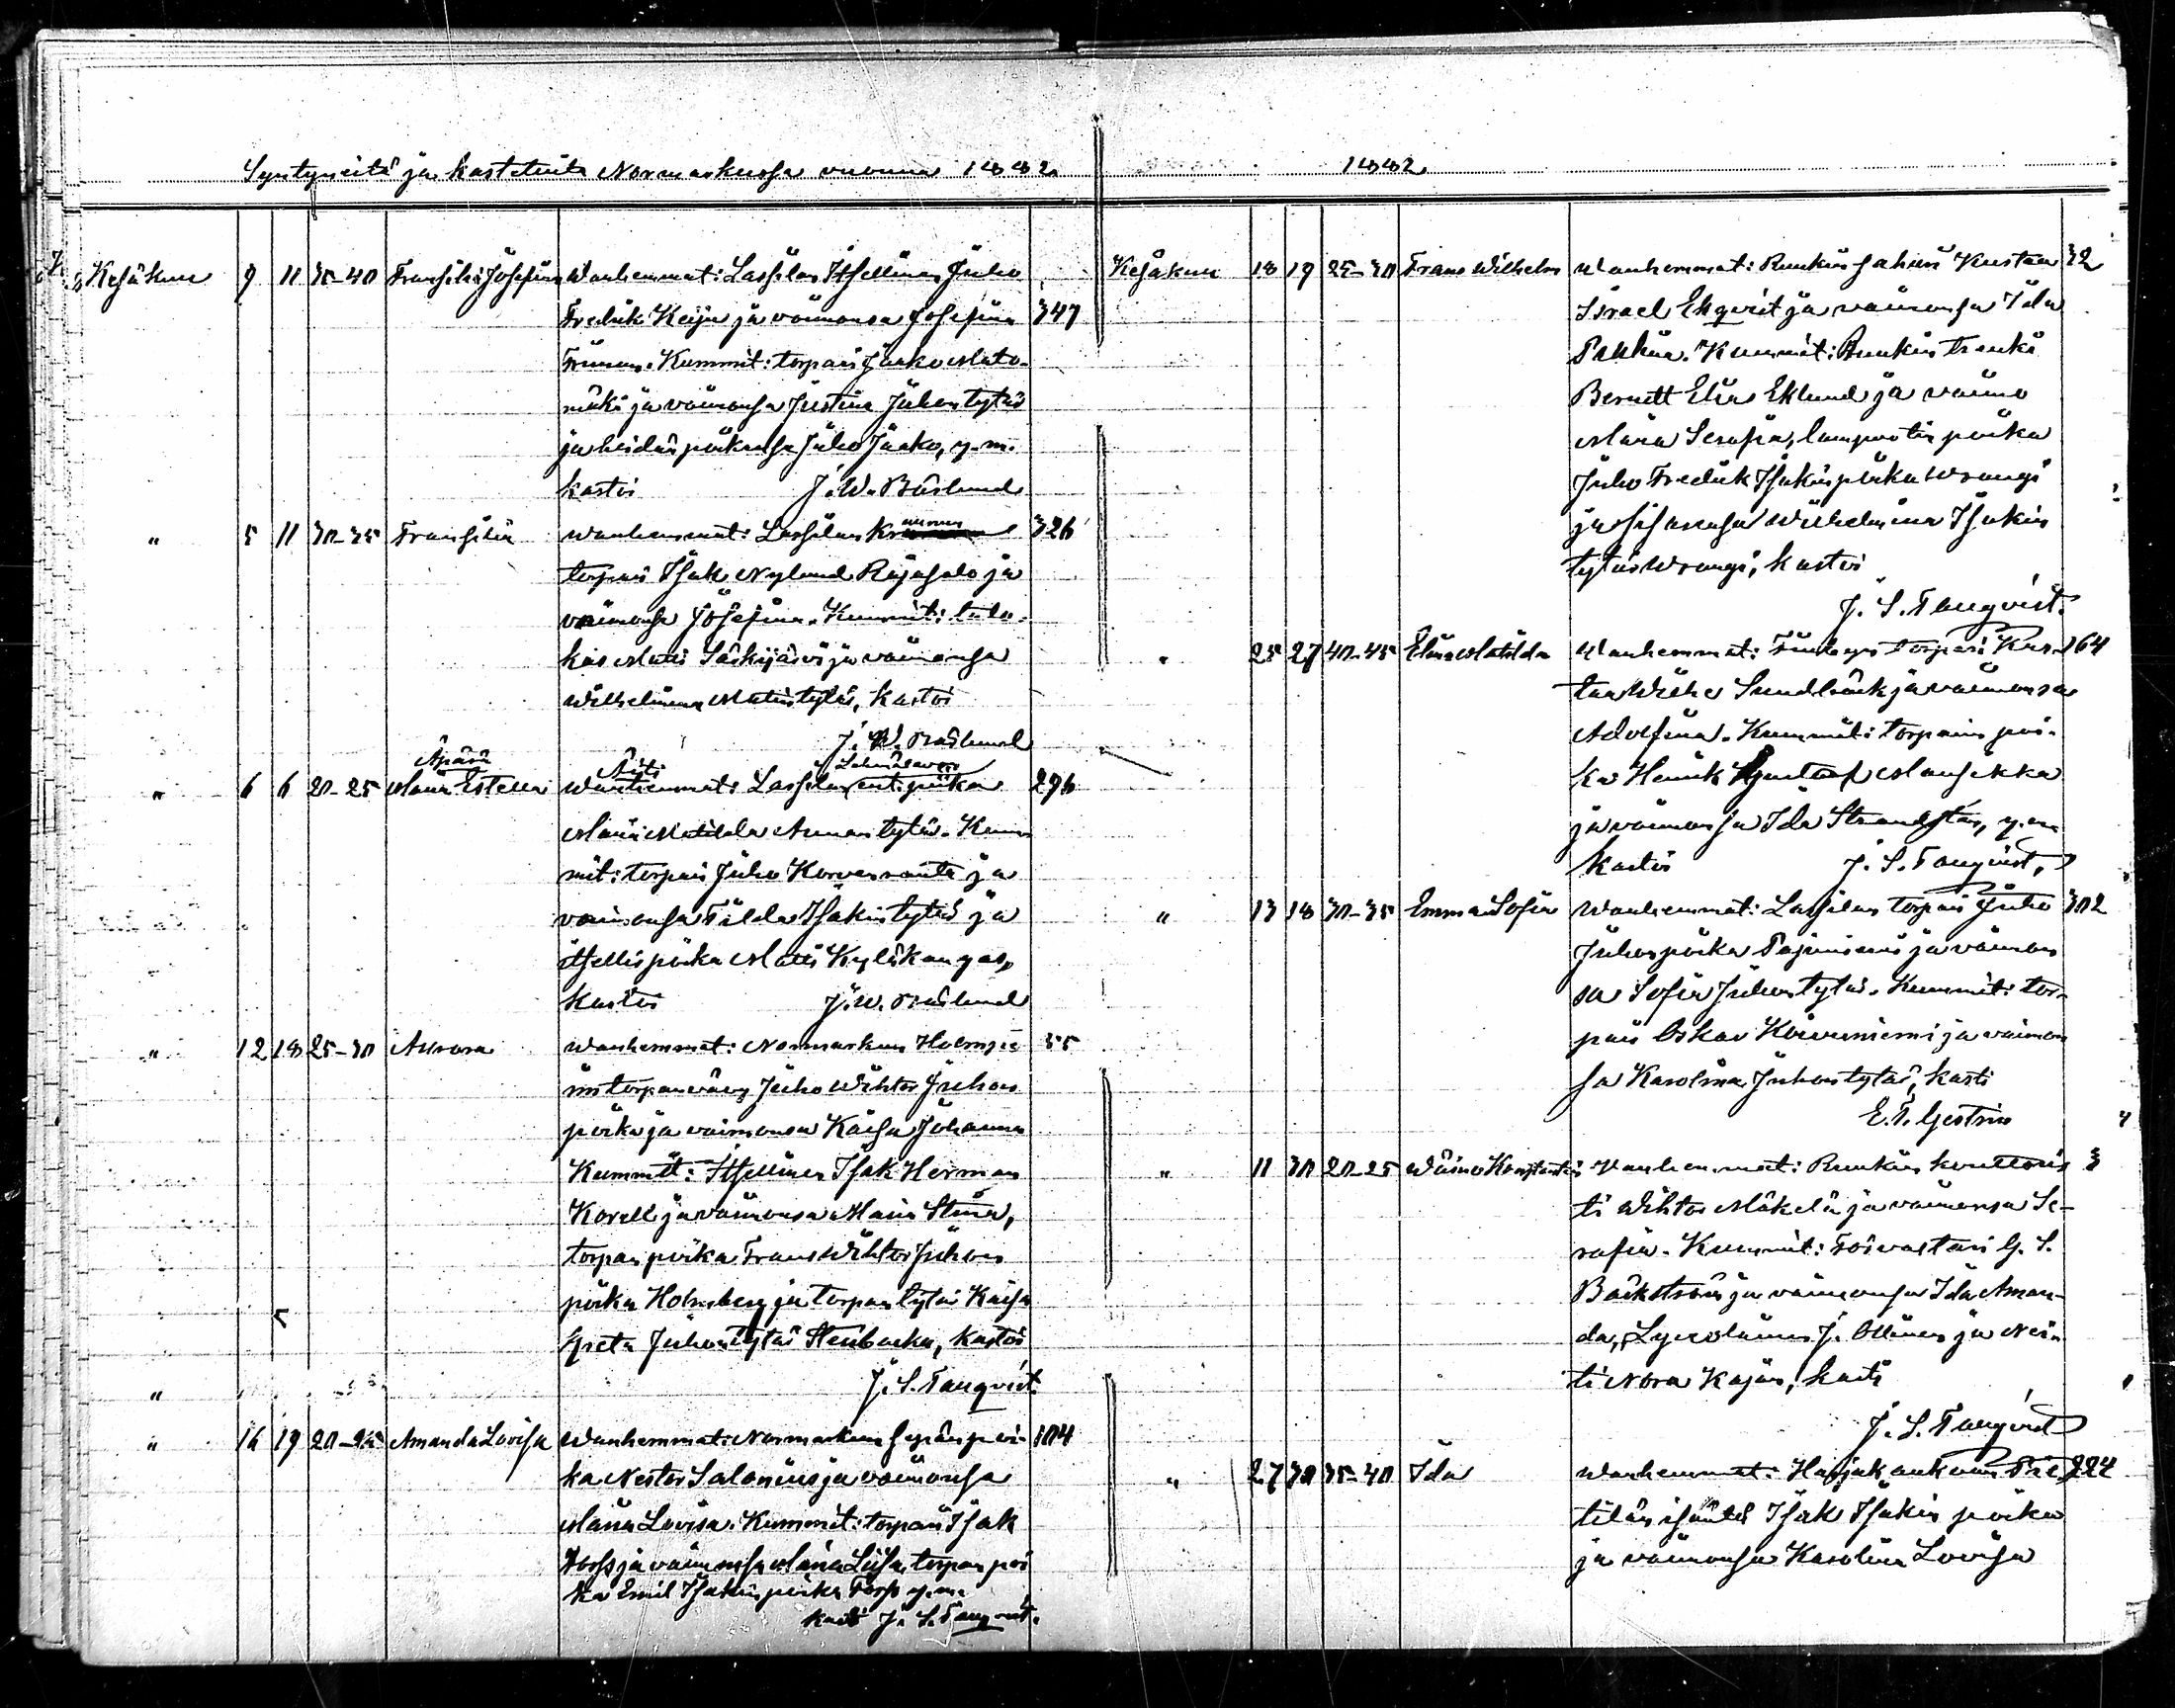 Syntyneitä ja kastetuita Normarkussa vuonna 1882
Kesäkuu 9 11 35-40 Fransilia Josefina Wanhemmat: Lassilan Itsellinen Juho
Fredrik Keiju ja vaimonsa Josefina 347
Kummit: torpari Jaako Mato-
mäki ja vaimonsa Justina Juhontytär
ja heidän poikansa Juho Jaako, y.m.
kastoi J. W. Båslund
" 5 11 30-35 Fransilia Wanhemmat: Lassilan 326
torpari Isak Nylund Rajasalo ja
vaimonsa Josefina. Kummit: talo-
kas Matti Särkijärvi ja vaimonsa
Wilhelmina Matintytär, kastoi
J. W. Båslund
" 6 6 20-25 Äpärä Maria Estella Äiti Wanhemmat: Lassilan piika 296
Maria Matilda Annantytär. Kum
mit: torpari Juho Korvenranta ja
vaimonsa Tilda Isakintytär ja
itsellis poika Matti Kyläkangas,
kastoi J. W. Båslund
" 12 18 25-30 Aurora Wanhemmat: Normarkun 55
torpanwäwy Juho Wihtor Juhan
poika ja vaimonsa Kaisa Johanna
Kummit: Itsellinen Isak Herman
Korell ja vaimonsa Maria Stiina,
torpan poika Frans Wihtor Juhan
poika Holmberg ja torpan tytär Kaisa
Greta Juhontytär Stenbacka, kastoi
J. S. Tanqvist
"
" 16 19 20-25 Amanda Lovisa Wanhemmat: Normarkun sepän poi- 104
ka Nestor Salonius ja vaimonsa
Maria Lovisa. Kummit: torpari Isak
ja vaimonsa Maria Liisa, torpan poi
ka Emil Isakinpoika Torp y.m.
kasti J. S. Tanqvist.
1882
Kesäkuu 18 19 25-30 Frans Wilhelm Wanhemmat: Ruukin Kustaa 32
Israel Ekqvist ja vaimonsa Ida
Kummit: Ruukin trenki
Bernett Elias Eklund ja vaimo
Maria Serafia, lampuotin poika
Juho Fredrik Isakinpoika Wrangi
ja sisarensa Wilhelmina Isakin
tytär Wrangi, kastoi
J. S. Tanqvist.
" 25 27 40-45 Elina Matilda Wanhemmat: torpari Kus- 164
taa Wilhe Sundbäck ja vaimonsa
Adolfina. Kummit: torparin poi-
ka Henrik Gustaf
ja vaimonsa Ida y.m.
kastoi J. S. Tanqvist.
" 13 18 30-35 Emma Sofia Wanhemmat: Lassilan torpari Juho 302
Juhonpoika Pajuniemi ja vaimon
sa Sofia Juhontytär. Kummit: tor-
pari Oskar Koivuniemi ja vaimon
sa Karolina Juhontytär, kasti
E. T. Gestrin
" 11 30 20-25 Wäinö Konstantin Wanhemmat: Ruukin konttoris 3
ti Wihtor Mäkelä ja vaimonsa Se-
rafia. Kummit: G. S.
Bäckström ja vaimonsa Ida Aman-
da, Lyceolainen J. Ollinen ja Nei-
ti Nora Kajan, kasti
J. S. Tanqvist
" 27 30 35-40 Ida Wanhemmat: Harjakankaan Prit- 224
tilän isäntä Isak Isakin poika
ja vaimonsa Karolina Lovisa